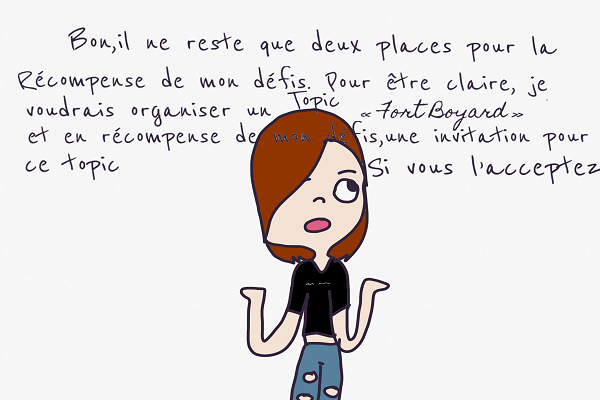 Bon,il ne reste que deux places pour la
Récompense de mon défis. Pour être claire, je
voudrais organiser un Topic «FortBoyard»
et en récompense de mon défis,une invitation pour
ce topic Si vous l'acceptez